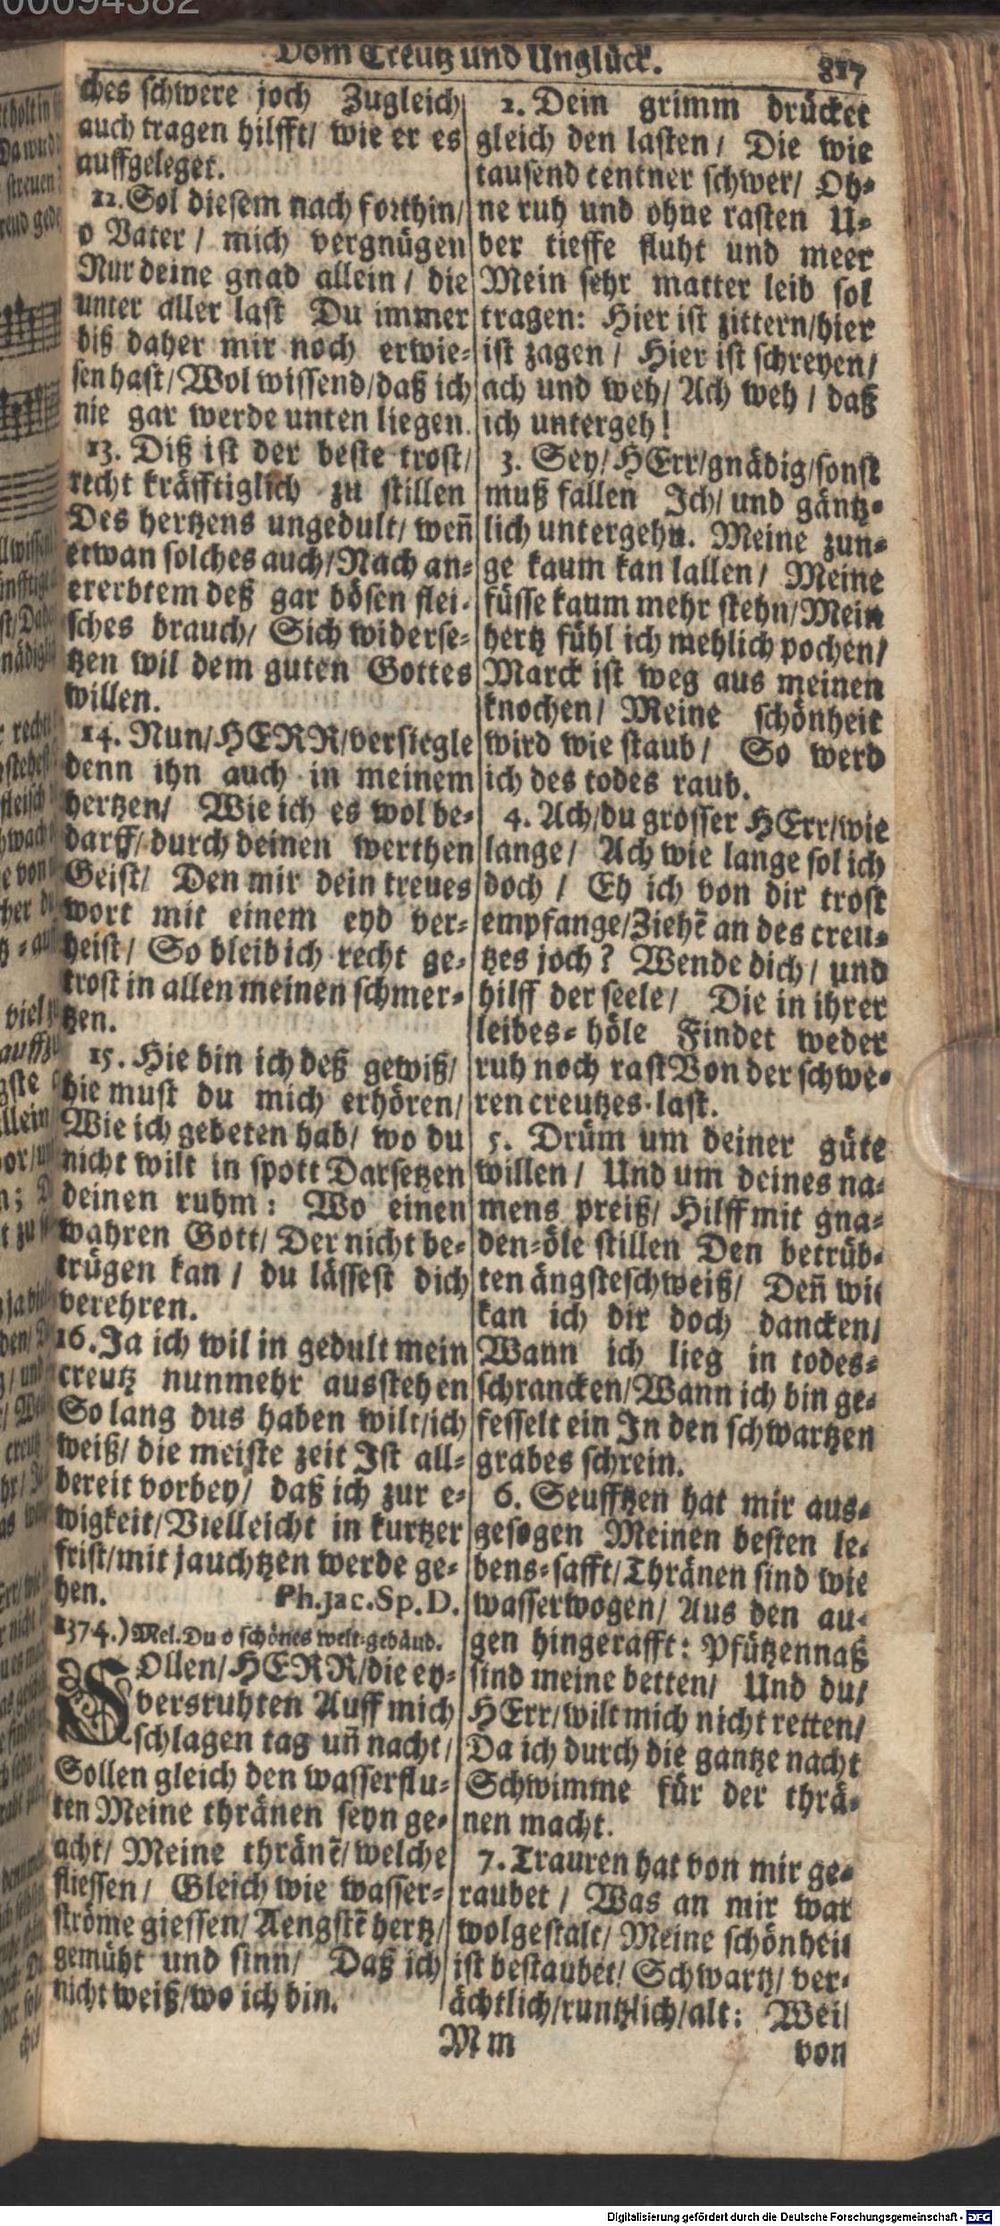 00094382
Vom Creutz und Unglück. 817
ches schwere joch Zugleich
auch tragen hilfft/ wie er es
auffgeleget.
12. Sol diesem nach forthin/
o Vater/ mich vergnügen
Nur deine gnad allein/ die
unter aller last Du immer
diß daher mir noch erwie-
sen hast/Wol wissend/daß ich
nie gar werde unten liegen.
13. Diß ist der beste trost/
recht kräfftiglich zu stillen
Des hertzens ungedult/ weñ
etwan solches auch/Nach an-
ererbtem deß gar bösen flei-
sches brauch/ Sich widerse-
tzen wil dem guten Gottes
willen.
14. Nun/HERR/versiegle
denn ihn auch in meinem
hertzen/ Wie ich es wol be-
darff/durch deinen werthen
Geist/ Den mir dein treues
wort mit einem eyd ver-
heist/ So bleib ich recht ge-
trost in allen meinen schmer-
tzen.
15. Hie bin ich deß gewiß/
hie must du mich erhören/
Wie ich gebeten hab/ wo du
nicht wilt in spott Darsetzen
deinen ruhm: Wo einen
wahren Gott/ Der nicht be-
trügen kan/ du lässest dich
verehren.
16. Ja ich wil in gedult mein
creutz nunmehr ausstehen
So lang dus haben wilt/ich
weiß/ die meiste zeit Ist all-
bereit vorbey/ daß ich zur e-
wigkeit/Vielleicht in kurtzer
frist/mit jauchtzen werde ge-
hen. Ph. Jac. Sp. D.
1374.) Mel. Du o schönes welt-gebäud.
SOllen/HERR/die ey-
versruhten Auff mich
schlagen tag uñ nacht/
Sollen gleich den wasserflu-
ten Meine thränen seyn ge-
acht/ Meine thränẽ/welche
fliessen/ Gleich wie wasser-
ströme giessen/Aengstẽ hertz/
gemüht und sinn/ Daß ich
nicht weiß/wo ich bin.
2. Dein grimm drücket
gleich den lasten/ Die wie
tausend centner schwer/ Oh-
ne ruh und ohne rasten U-
ber tieffe fluht und meer
Mein sehr matter leib sol
tragen: Hier ist zittern/hier
ist zagen/ Hier ist schreyen/
ach und weh/ Ach weh/ daß
ich untergeh!
3. Sey/HErr/gnädig/sonst
muß fallen Ich/ und gäntz-
lich untergehn. Meine zun-
ge kaum kan lallen/ Meine
füsse kaum mehr stehn/Mein
hertz fühl ich mehlich pochen/
Marck ist weg aus meinen
knochen/ Meine schönheit
wird wie staub/ So werd
ich des todes raub.
4. Ach/du grosser HErr/wie
lange/ Ach wie lange sol ich
doch/ Eh ich von dir trost
empfange/Ziehẽ an des creu-
tzes joch? Wende dich/ und
hilff der seele/ Die in ihrer
leibes-höle Findet weder
ruh noch rast Von der schwe-
ren creutzes-last.
5. Drüm um deiner güte
willen/ Und um deines na-
mens preiß/ Hilff mit gna-
den-öle stillen Den betrüb-
ten ängsteschweiß/ Deñ wie
kan ich dir doch dancken/
Wann ich lieg in todes-
schrancken/Wann ich bin ge-
fesselt ein In den schwartzen
grabes schrein.
6. Seufftzen hat mir aus-
gesogen Meinen besten le-
bens-safft/Thränen sind wie
wasserwogen/ Aus den au-
gen hingerafft: Pfützennaß
sind meine betten/ Und du/
HErr/wilt mich nicht retten/
Da ich durch die gantze nacht
Schwimme für der thrä-
nen macht.
7. Trauren hat von mir ge-
raubet/ Was an mir war
wolgestalt/ Meine schönheit
ist bestaubet/ Schwartz/ ver-
ächtlich/runtzlich/alt: Weil
M m von
Digitalisierung gefördert durch die Deutsche Forschungsgemeinschaft - DFG